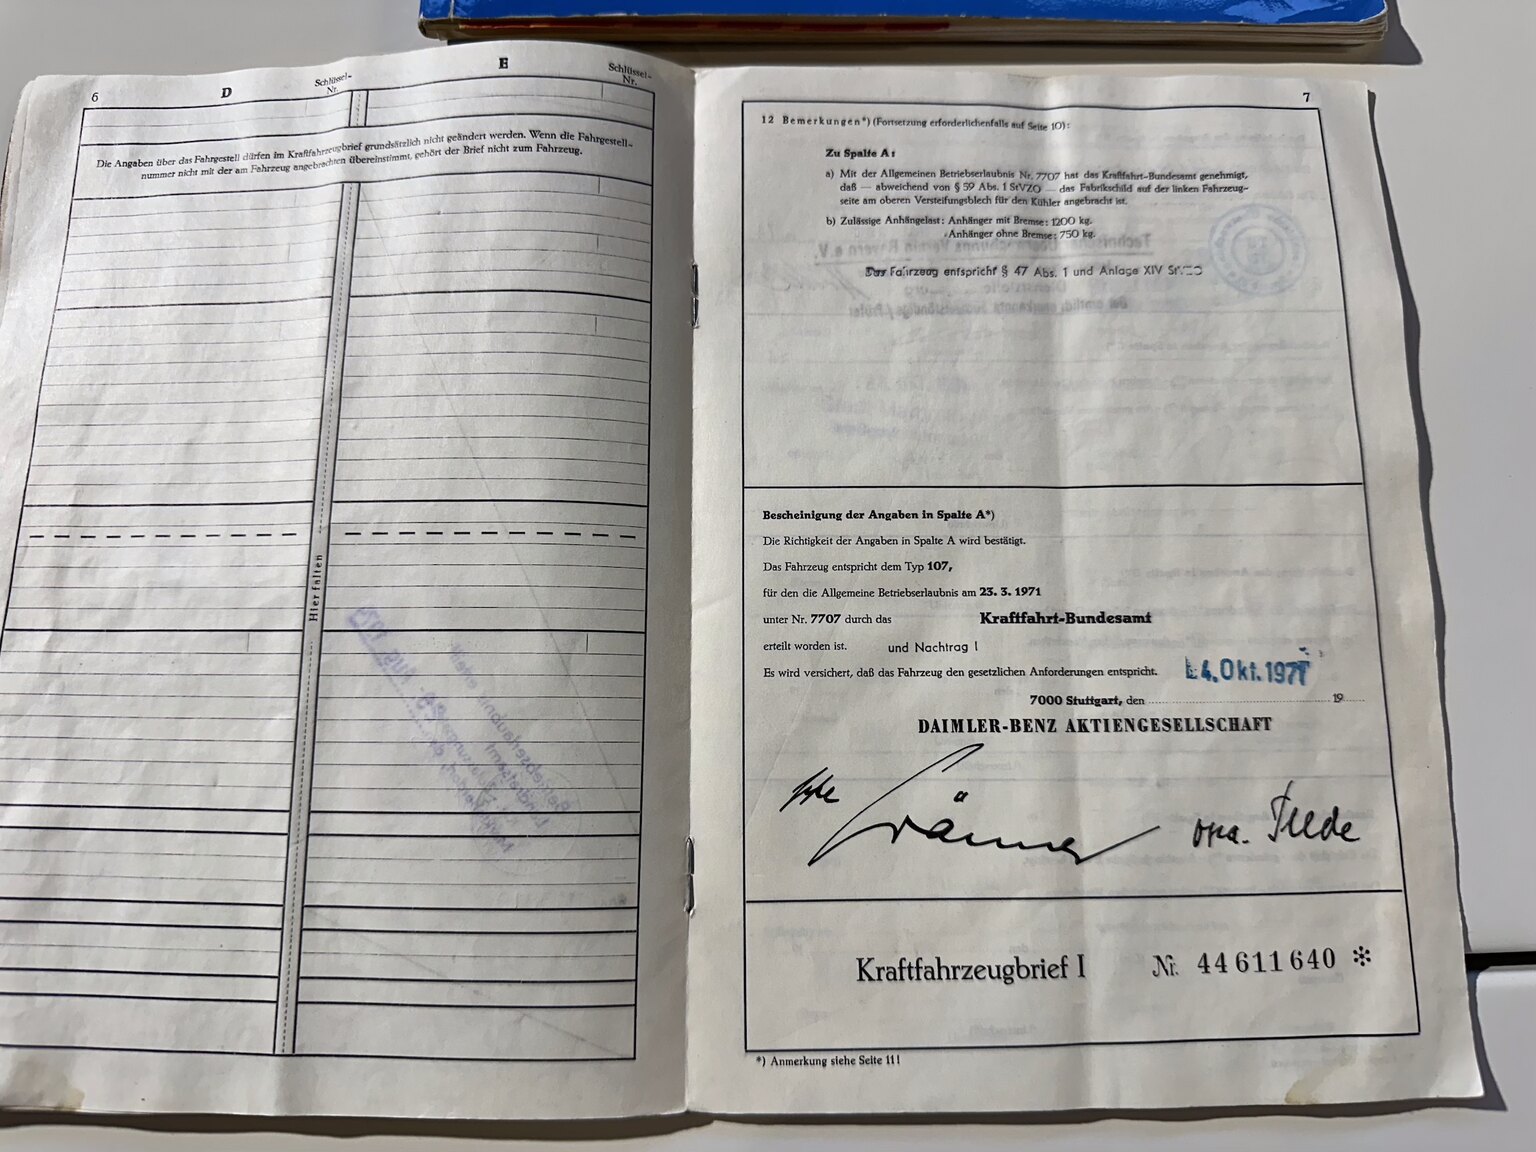 6
D
Schlüssel-
Nr.
E
Schlüssel-
Nr.
Die Angaben über das Fahrgestell dürfen im Kraftfahrzeugbrief grundsätzlich nicht geändert werden. Wenn die Fahrgestell-
nummer nicht mit der am Fahrzeug angebrachten übereinstimmt, gehört der Brief nicht zum Fahrzeug.
Hier falten
7
12 Bemerkungen*) (Fortsetzung erforderlichenfalls auf Seite 10):
Zu Spalte A:
a) Mit der Allgemeinen Betriebserlaubnis Nr. 7707 hat das Kraftfahrt-Bundesamt genehmigt,
daß — abweichend von § 59 Abs. 1 StVZO — das Fabrikschild auf der linken Fahrzeug-
seite am oberen Versteifungsblech für den Kühler angebracht ist.
b) Zulässige Anhängelast: Anhänger mit Bremse: 1200 kg.
Anhänger ohne Bremse: 750 kg.
Das Fahrzeug entspricht § 47 Abs. 1 und Anlage XIV
Bescheinigung der Angaben in Spalte A*)
Die Richtigkeit der Angaben in Spalte A wird bestätigt.
Das Fahrzeug entspricht dem Typ 107,
für den die Allgemeine Betriebserlaubnis am 23. 3. 1971
unter Nr. 7707 durch das Kraftfahrt-Bundesamt
erteilt worden ist. und Nachtrag I
Es wird versichert, daß das Fahrzeug den gesetzlichen Anforderungen entspricht.
4. Okt. 1971
7000 Stuttgart, den 19
DAIMLER-BENZ AKTIENGESELLSCHAFT
Kraftfahrzeugbrief I Nr. 44 611 640 *
*) Anmerkung siehe Seite 11!